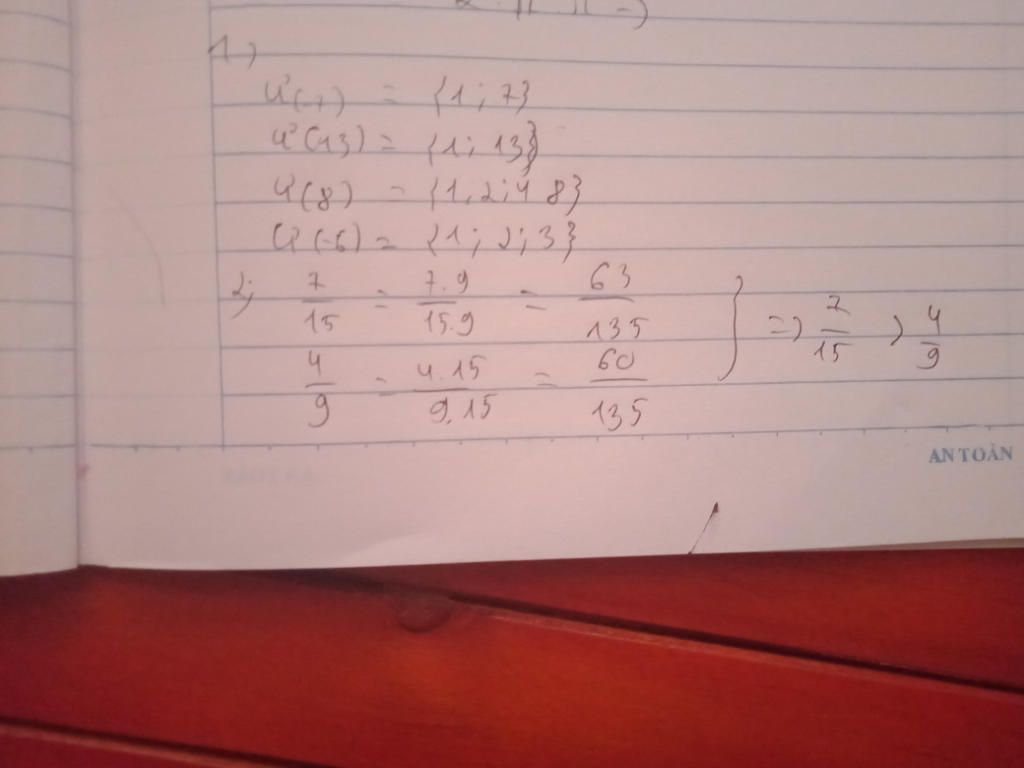 1.)
Ư(-7) = {1; 7}
Ư(13) = {1; 13}
Ư(8) = {1, 2; 4 8}
Ư(-6) = {1; 2; 3}
2; 7/15 = 7.9/15.9 = 63/135 } => 7/15 > 4/9
4/9 = 4.15/9.15 = 60/135
AN TOÀN